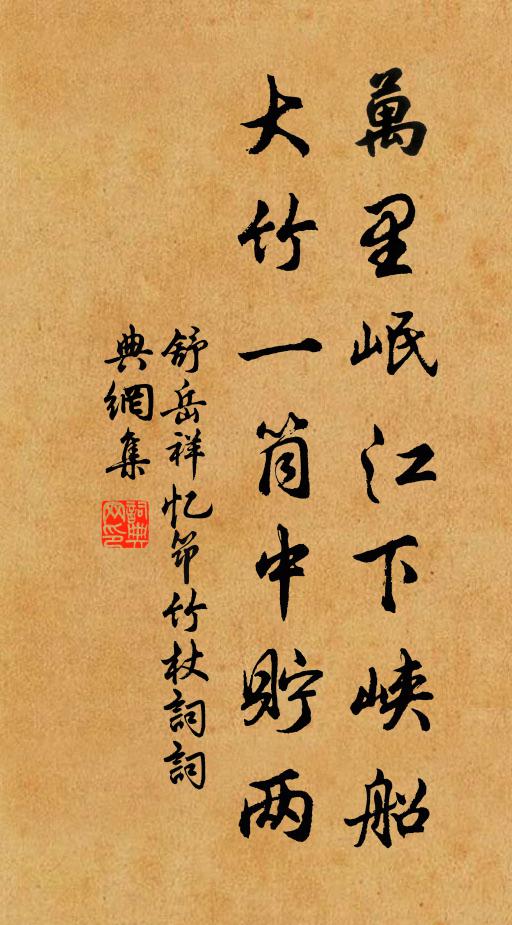 萬里岷江下峡船
大竹一筒中貯两
舒岳祥忆笻竹杖詞詞
典網集
詞典
网印